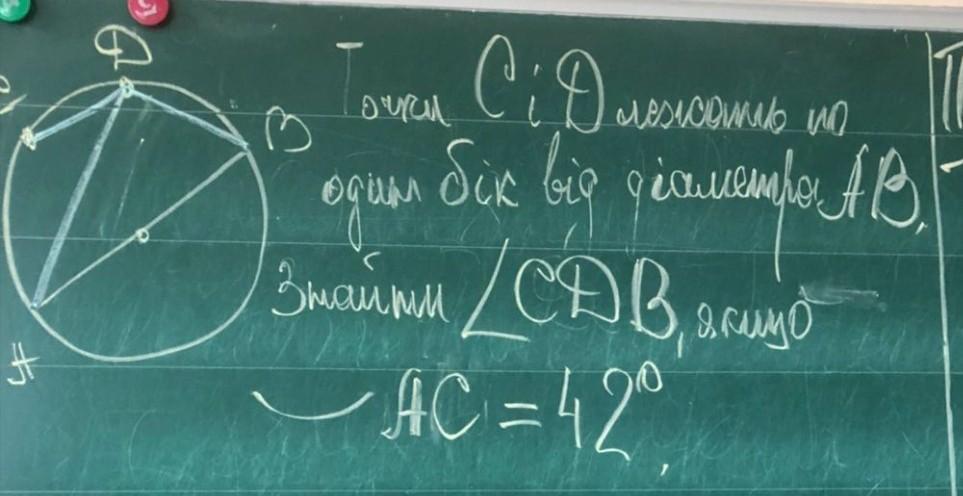 D
B
A
Точки C i D лежать по
один бік від діаметра AB,
Знайти ∠CDB, якщо
◡ AC = 42⁰,